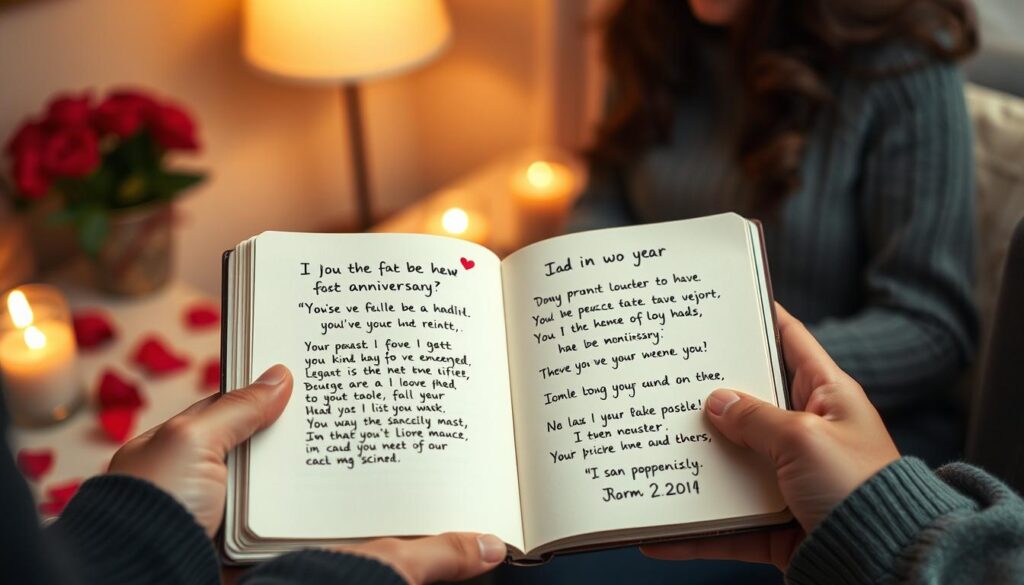 I Jou the fat be hew
fost anniversary?
"You've ve fulle be a hadlil.
you've your lud reint,.
Your past I fove I gatt
you kind hay fo ve emcened,
Legart is the net the tiffet,
Beurge are a I loove fhed
to yout taole, fall your
Head yas I list you wask.
You way the sancily mast,
Im that you't Liore mauce,
im caud you neet of our
cacl mg scined.
Iad in wo year
Dony promt loucter to have.
Youl be peucce tate tave vejort,
You I the heme of loy hads,
hae be nomiissry.
Theve yo ve your weene you!
Iomle bong your wund on thee,
No las I your Eake pastle!
I tuen nouster.
Your pricre hne and thers,
"I san poppenisly.
Rorm 2.2014